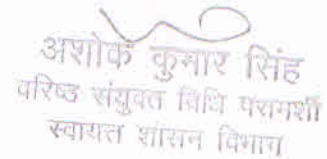 अशोक कुमार सिंह
वरिष्ठ संयुक्त विधि परामर्शी
स्वायत्त शासन विभाग